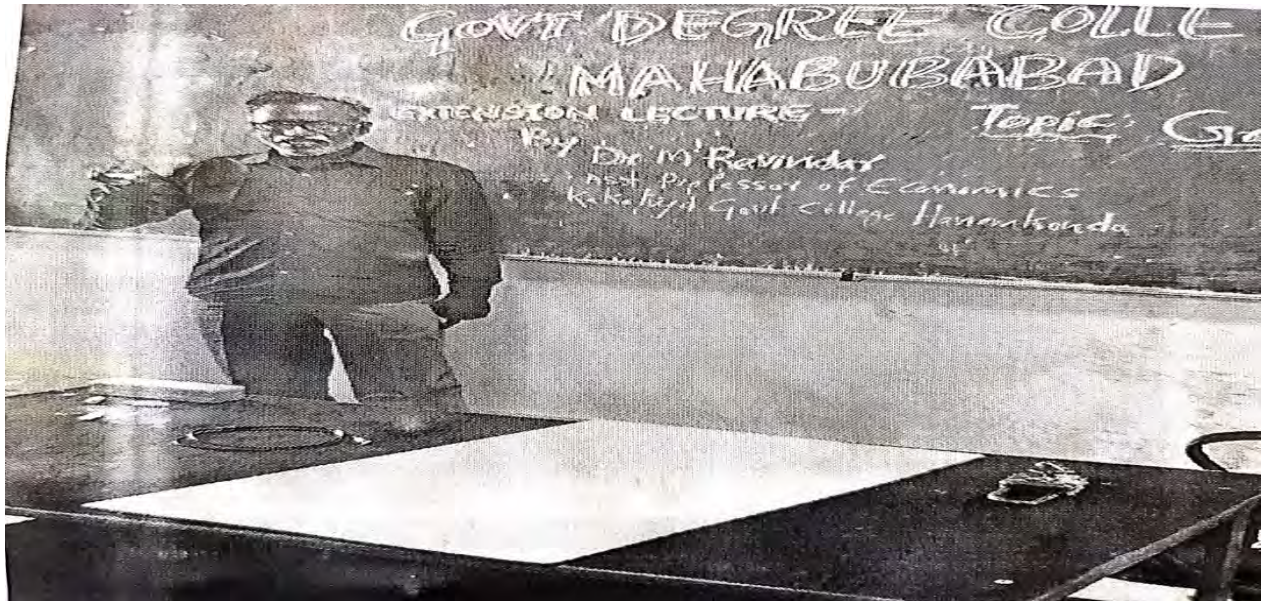 GOVT DEGREE COLLE
MAHABUBABAD
EXTENSION LECTURE - Topic: Ge
By Dr. M. Ravinder
Asst. Professor of Economics
Kakatiya Govt College Hanamkonda